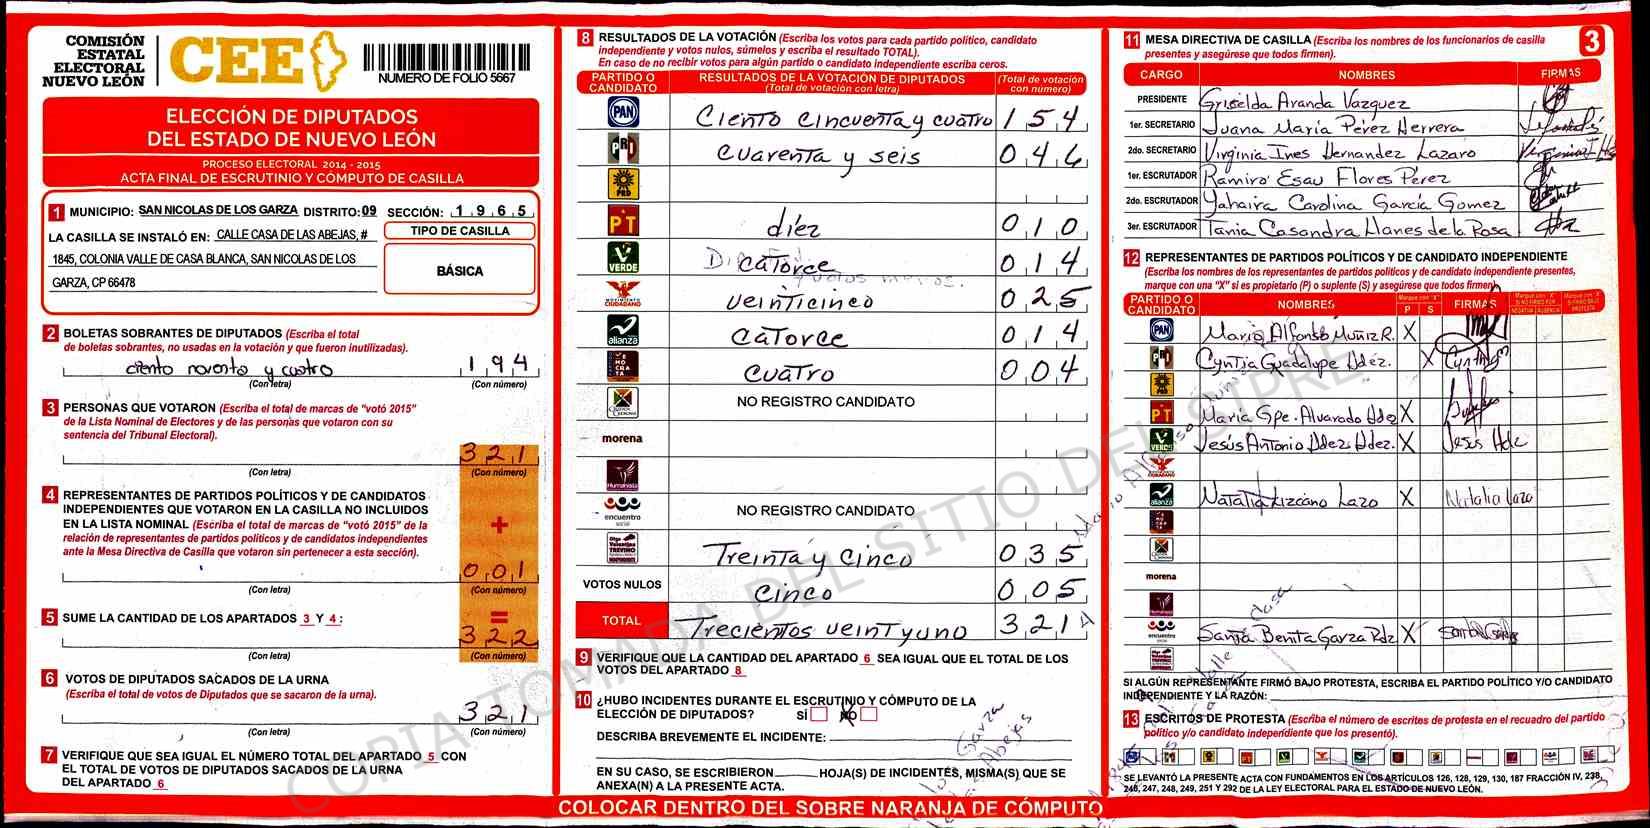 COMISIÓN
ESTATAL
ELECTORAL
NUEVO LEÓN
CEE
NUMERO DE FOLIO 5667
ELECCIÓN DE DIPUTADOS
DEL ESTADO DE NUEVO LEÓN
PROCESO ELECTORAL 2014 - 2015
ACTA FINAL DE ESCRUTINIO Y CÓMPUTO DE CASILLA
1 MUNICIPIO: SAN NICOLAS DE LOS GARZA DISTRITO: 09 SECCIÓN: 1965
LA CASILLA SE INSTALÓ EN: CALLE CASA DE LAS ABEJAS, #
1845, COLONIA VALLE DE CASA BLANCA, SAN NICOLAS DE LOS
GARZA, CP 66478
TIPO DE CASILLA
BÁSICA
2 BOLETAS SOBRANTES DE DIPUTADOS (Escriba el total
de boletas sobrantes, no usadas en la votación y que fueron inutilizadas).
ciento noventa y cuatro 194
(Con letra) (Con número)
3 PERSONAS QUE VOTARON (Escriba el total de marcas de "votó 2015"
de la Lista Nominal de Electores y de las personas que votaron con su
sentencia del Tribunal Electoral).
321
(Con letra) (Con número)
4 REPRESENTANTES DE PARTIDOS POLÍTICOS Y DE CANDIDATOS
INDEPENDIENTES QUE VOTARON EN LA CASILLA NO INCLUIDOS
EN LA LISTA NOMINAL (Escriba el total de marcas de "votó 2015" de la
relación de representantes de partidos políticos y de candidatos independientes
ante la Mesa Directiva de Casilla que votaron sin pertenecer a esta sección).
+
001
(Con letra) (Con número)
5 SUME LA CANTIDAD DE LOS APARTADOS 3 Y 4:
=
322
(Con letra) (Con número)
6 VOTOS DE DIPUTADOS SACADOS DE LA URNA
(Escriba el total de votos de Diputados que se sacaron de la urna).
321
(Con letra) (Con número)
7 VERIFIQUE QUE SEA IGUAL EL NÚMERO TOTAL DEL APARTADO 5 CON
EL TOTAL DE VOTOS DE DIPUTADOS SACADOS DE LA URNA
DEL APARTADO 6
8 RESULTADOS DE LA VOTACIÓN (Escriba los votos para cada partido político, candidato
independiente y votos nulos, súmelos y escriba el resultado TOTAL).
En caso de no recibir votos para algún partido o candidato independiente escriba ceros.
PARTIDO O CANDIDATO
RESULTADOS DE LA VOTACIÓN DE DIPUTADOS
(Total de votación con letra)
(Total de votación con número)
PAN Ciento cincuenta y cuatro 154
PRI cuarenta y seis 046
PRD
PT diez 010
VERDE catorce 014
MOVIMIENTO CIUDADANO veinticinco 025
alianza catorce 014
DEMOCRATA cuatro 004
NO REGISTRO CANDIDATO
morena
Humanista
encuentro social NO REGISTRO CANDIDATO
Olga Valentina TREVIÑO Treinta y cinco 035
VOTOS NULOS cinco 005
TOTAL Trecientos veintyuno 321
9 VERIFIQUE QUE LA CANTIDAD DEL APARTADO 6 SEA IGUAL QUE EL TOTAL DE LOS
VOTOS DEL APARTADO 8
10 ¿HUBO INCIDENTES DURANTE EL ESCRUTINIO Y CÓMPUTO DE LA
ELECCIÓN DE DIPUTADOS? SÍ NO
DESCRIBA BREVEMENTE EL INCIDENTE:
EN SU CASO, SE ESCRIBIERON HOJA(S) DE INCIDENTES, MISMA(S) QUE SE
ANEXA(N) A LA PRESENTE ACTA.
11 MESA DIRECTIVA DE CASILLA (Escriba los nombres de los funcionarios de casilla
presentes y asegúrese que todos firmen).
3
CARGO NOMBRES FIRMAS
PRESIDENTE Griselda Aranda Vazquez
1er. SECRETARIO Juana María Pérez Herrera
2do. SECRETARIO Virginia Ines Hernandez Lazaro
1er. ESCRUTADOR Ramiro Esau Flores Pérez
2do. ESCRUTADOR Yahaira Carolina García Gomez
3er. ESCRUTADOR Tania Casandra Llanes de la Rosa
12 REPRESENTANTES DE PARTIDOS POLÍTICOS Y DE CANDIDATO INDEPENDIENTE
(Escriba los nombres de los representantes de partidos políticos y de candidato independiente presentes,
marque con una "X" si es propietario (P) o suplente (S) y asegúrese que todos firmen).
PARTIDO O CANDIDATO NOMBRES P S FIRMAS
PAN Mario Alfonso Muñiz R. X
PRI Cyntia Guadalupe Hdez. X
PRD
PT Maria Gpe. Alvarado Hdz X
VERDE Jesús Antonio Hdez Hdez. X Jesús Hdz
alianza Natalia Lizcano Lazo X Natalia Lazo
morena
encuentro social Santa Benita Garza Rdz X
SI ALGÚN REPRESENTANTE FIRMÓ BAJO PROTESTA, ESCRIBA EL PARTIDO POLÍTICO Y/O CANDIDATO
INDEPENDIENTE Y LA RAZÓN:
13 ESCRITOS DE PROTESTA (Escriba el número de escritos de protesta en el recuadro del partido
político y/o candidato independiente que los presentó).
SE LEVANTÓ LA PRESENTE ACTA CON FUNDAMENTOS EN LOS ARTÍCULOS 126, 128, 129, 130, 187 FRACCIÓN IV, 238,
246, 247, 248, 249, 251 Y 292 DE LA LEY ELECTORAL PARA EL ESTADO DE NUEVO LEÓN.
COLOCAR DENTRO DEL SOBRE NARANJA DE CÓMPUTO
COPIA TOMADA DEL SITIO DEL SIPRE